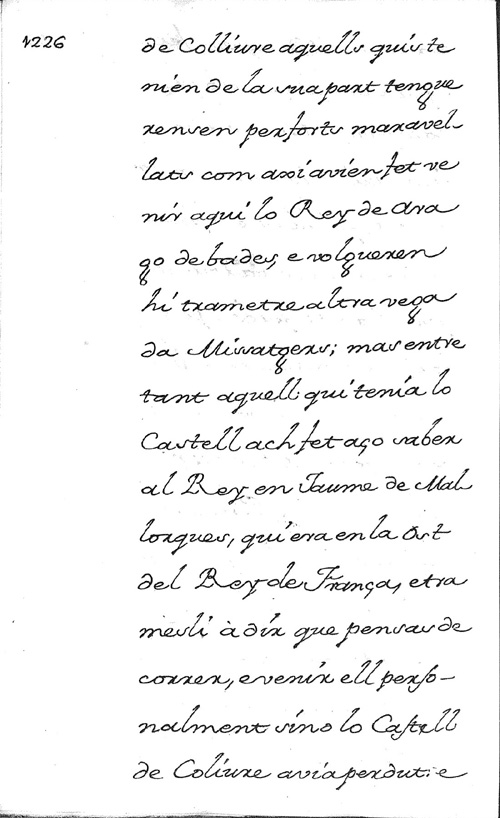 1226
de Colliure aquells quis te
nien de la sua part tengue
rensen per forts maravel
lats com axi avien fet ve
nir aqui lo Rey de Ara
go debades, e volgueren
hi trametre altra vega
da Missatgers; mas entre
tant aquell qui tenia lo
Castell ach fet aço saber
al Rey en Jaume de Mal
lorques, qui era en la Ost
del Rey de França, e tra
mesli à dir que pensas de
correr, e venir ell perso-
nalment sino lo Castell
de Coliure avia perdut: e